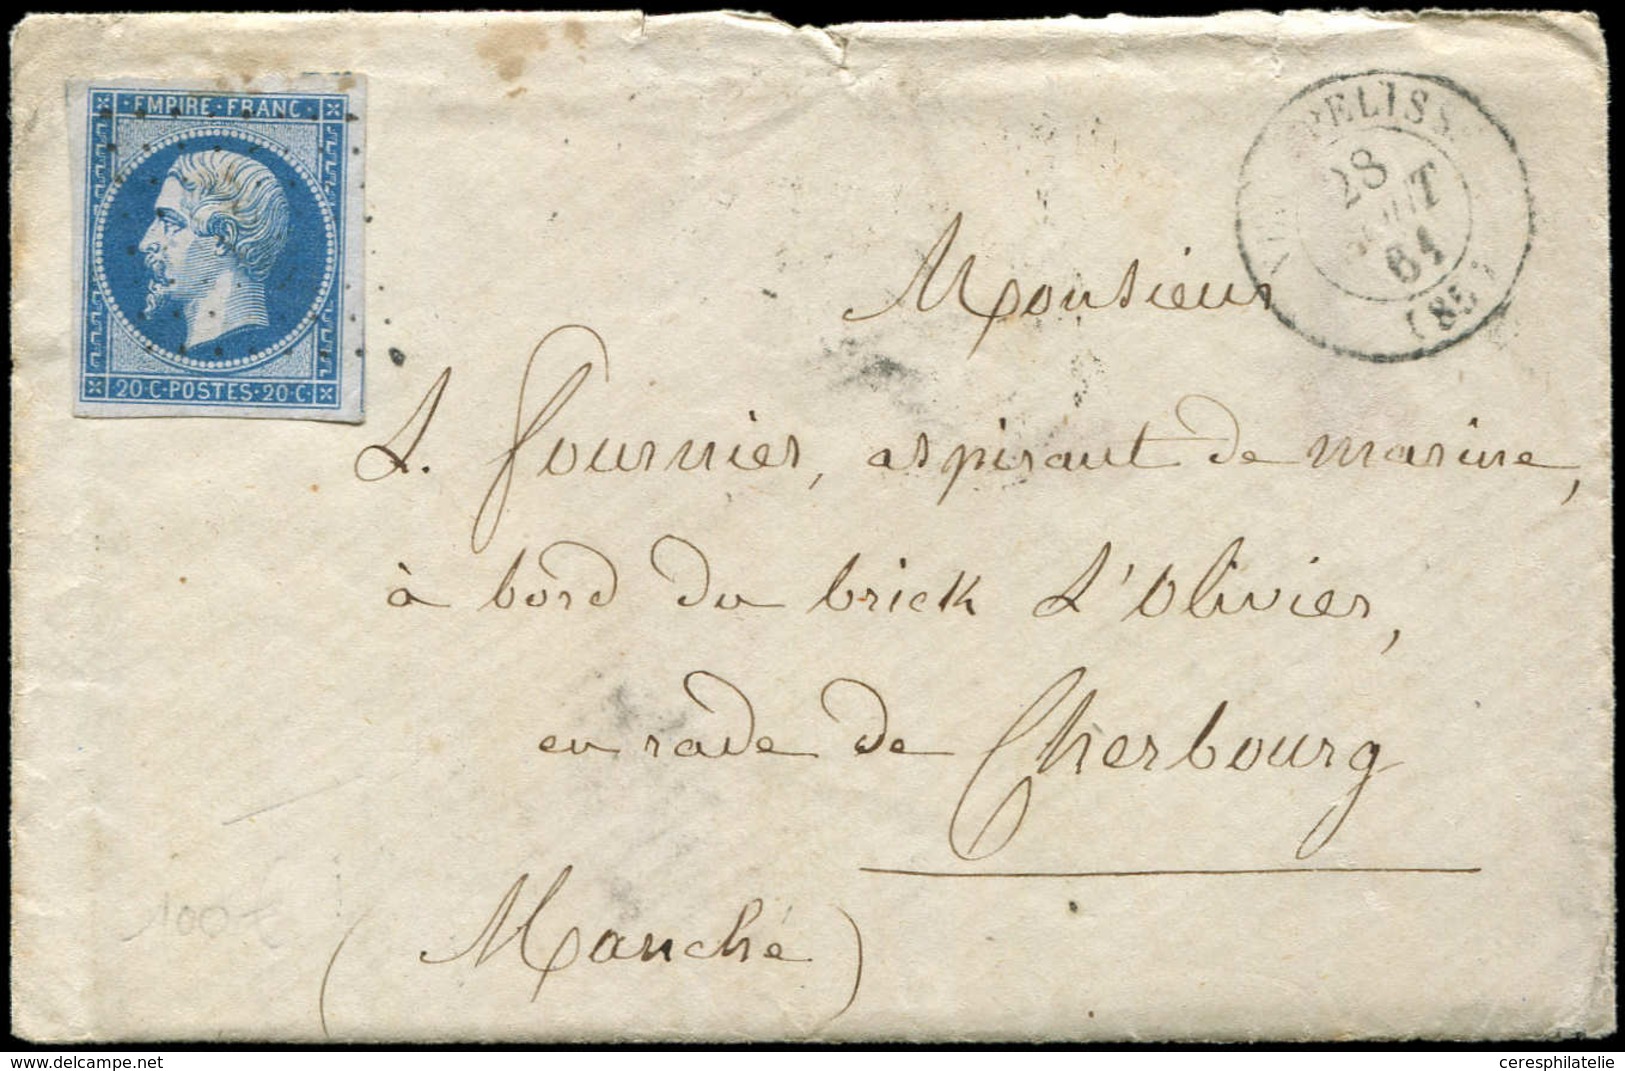 EMPIRE · FRANC ·
20 C · POSTES · 20 · C ·
PELISS
28
AOUT
61
(85)
Monsieur
L. Fournier, aspirant de marine,
à bord du brick L'Olivier,
en rade de Cherbourg
(Manche)
100
delcampe.net
ceresphilatelie